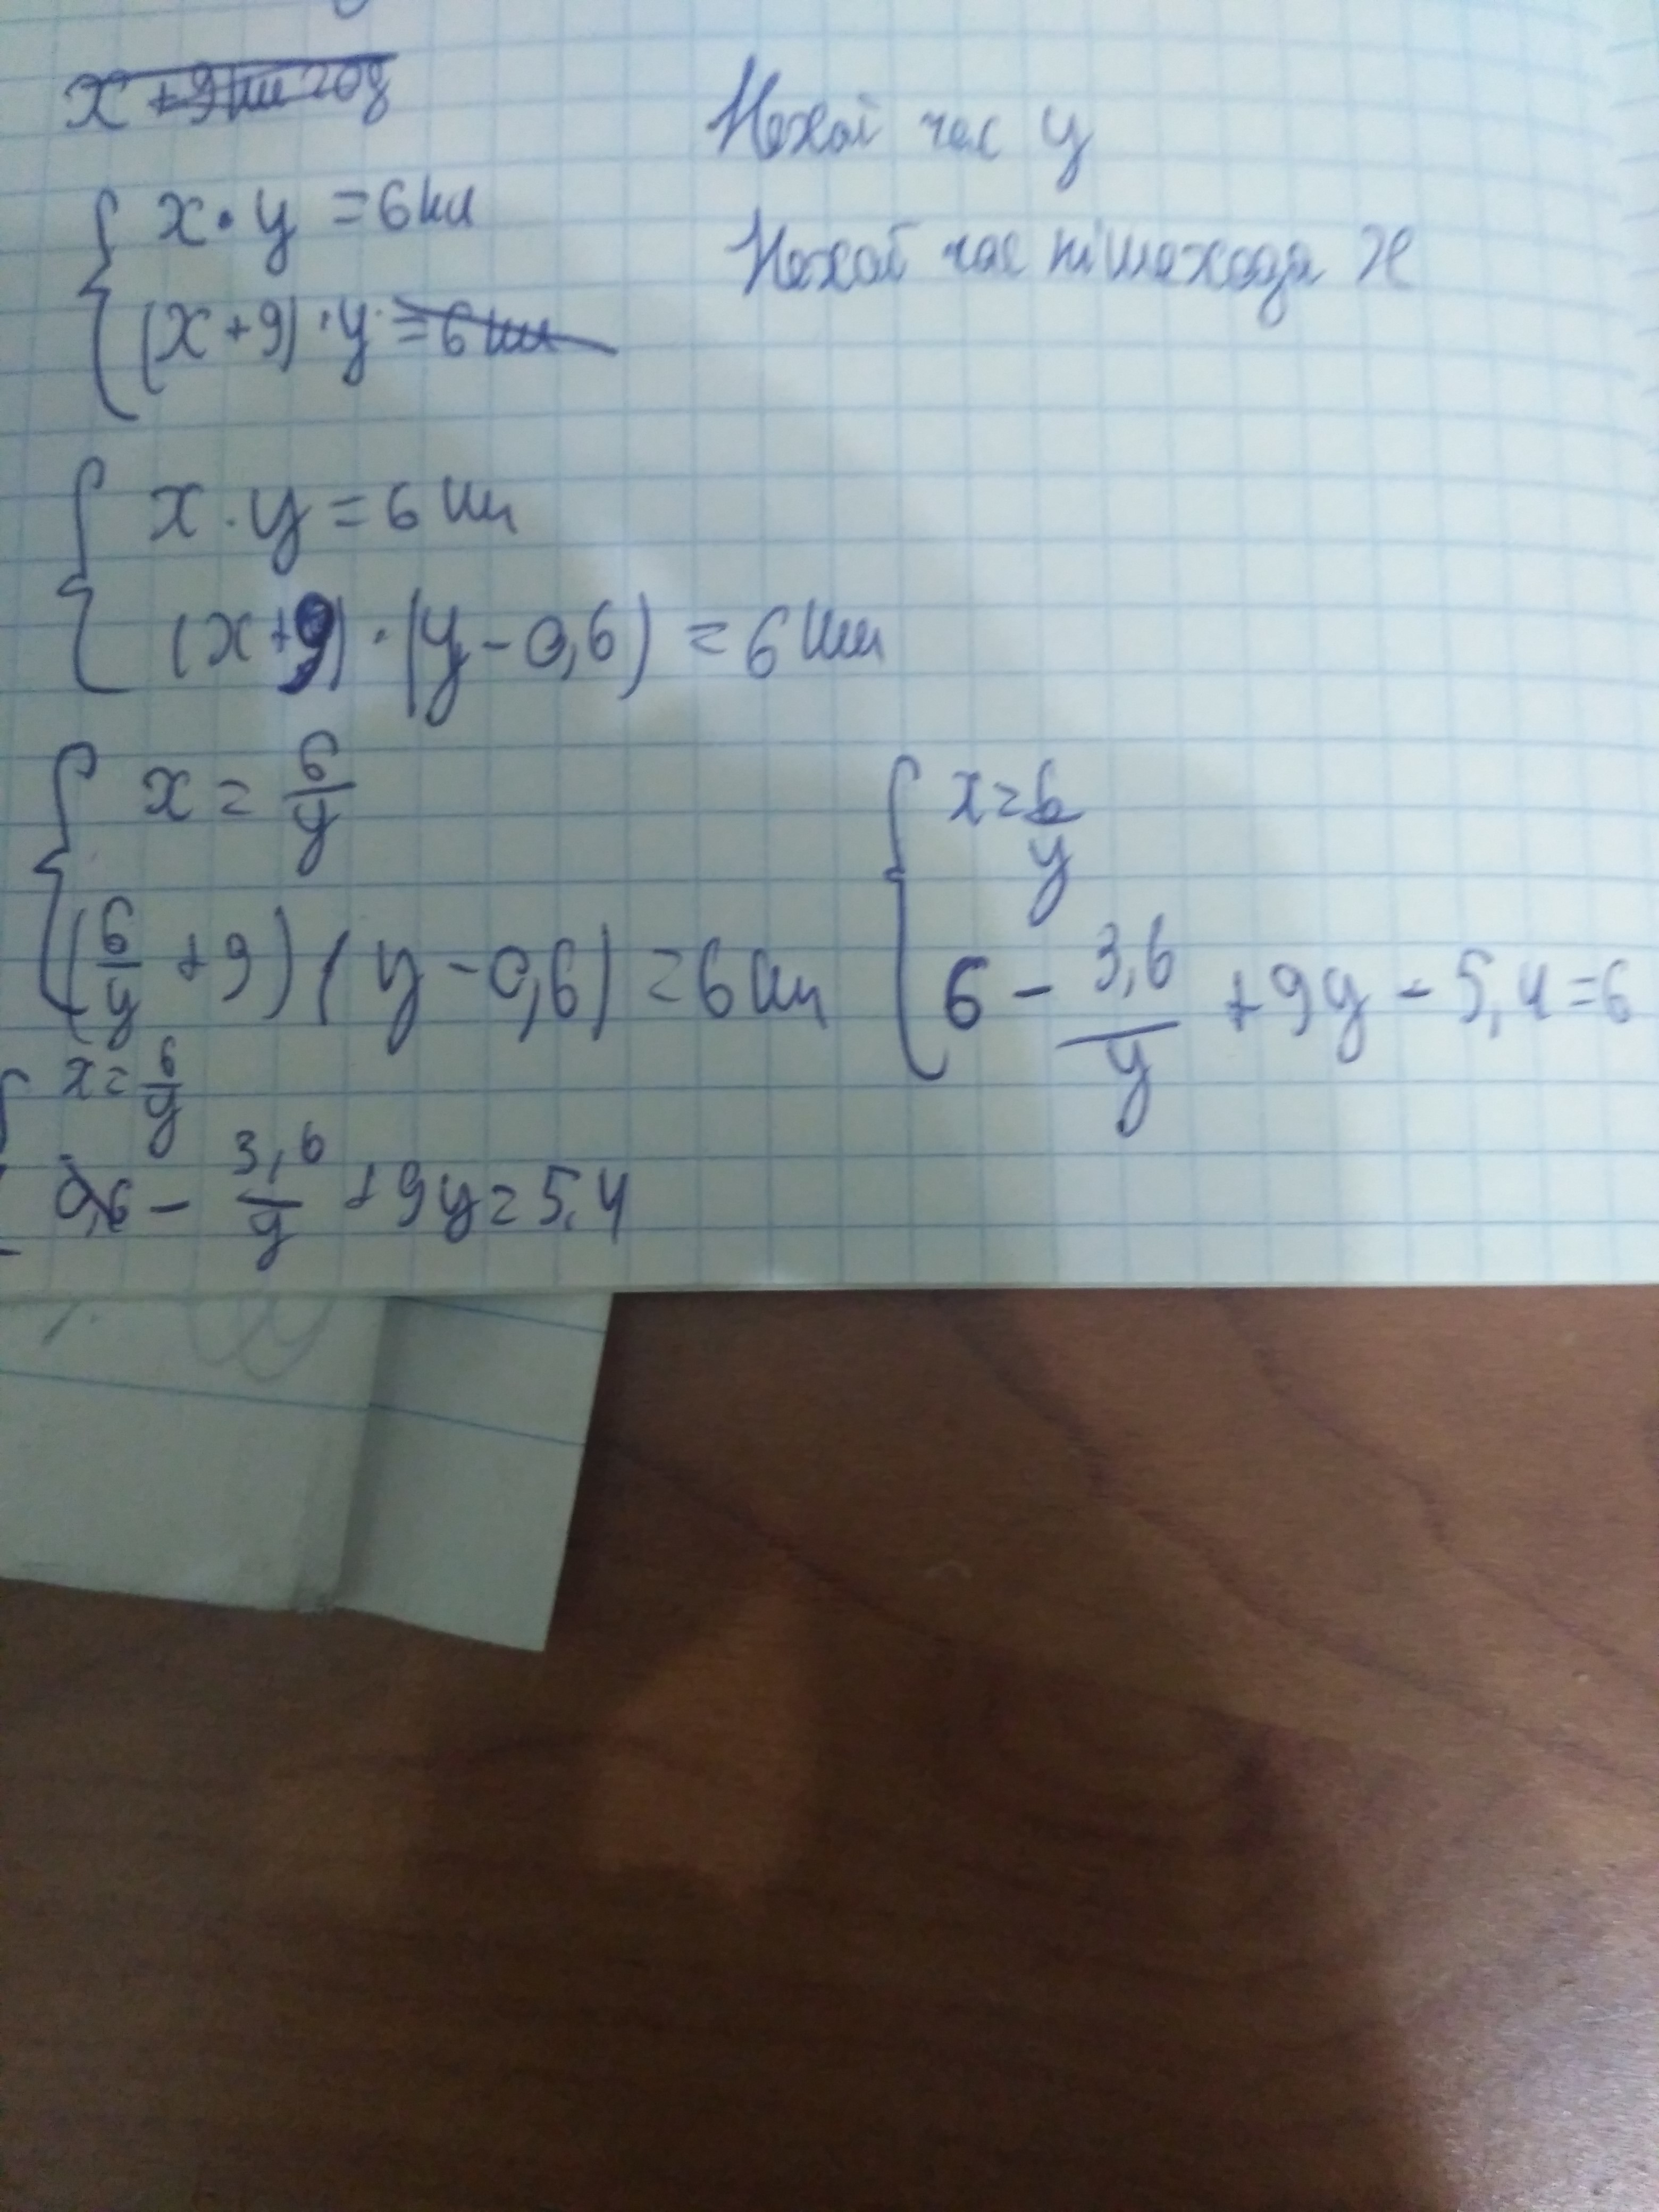 x + 9 км год
Нехай час y
{ x · y = 6 км
Нехай час пішехода x
(x + 9) · y = 6 км
{ x · y = 6 км
(x + 9) · (y - 0,6) = 6 км
{ x = 6/y
(6/y + 9) (y - 0,6) = 6 км
{ x = 6/y
6 - 3,6/y + 9y - 5,4 = 6
{ x = 6/y
- 3,6/y + 9y = 5,4